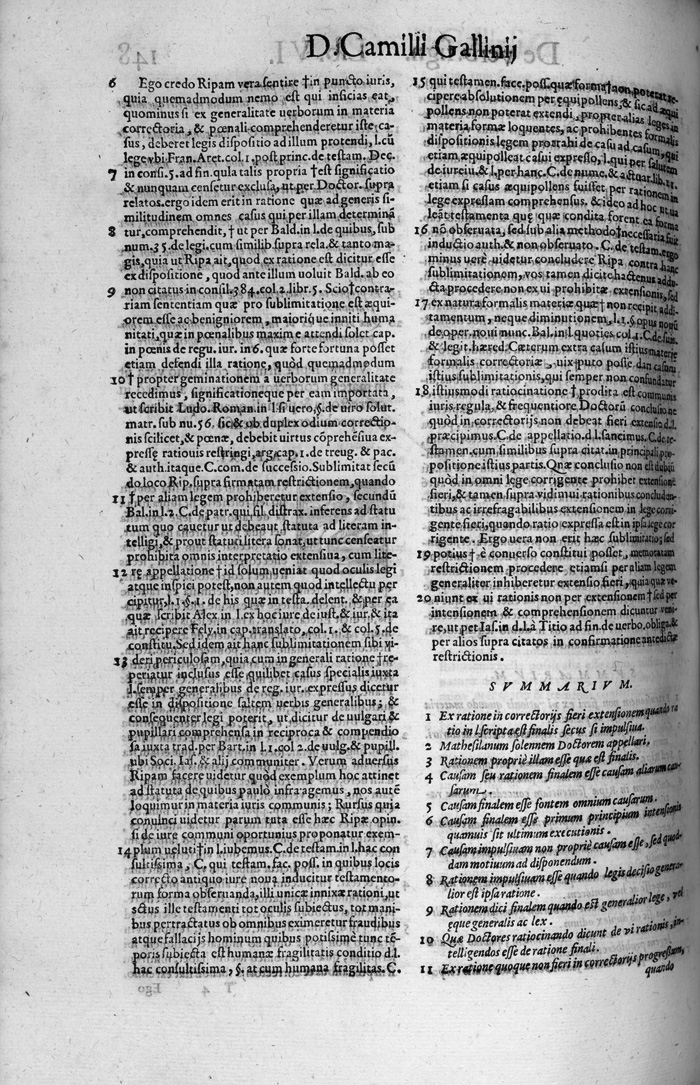 D. Camilli Gallinij
6 Ego credo Ripam vera sentire † in puncto iuris,
quia quemadmodum nemo est qui inficias eat,
quominus si ex generalitate uerborum in materia
correctoria, & pœnali comprehenderetur iste ca-
sus, deberet legis dispositio ad illum protendi, l. cũ
lege vbi Fran. Aret. col. 1. post princ. de testam. Dec.
7 in consi. 5. ad fin. qula talis propria † est significatio
& nunquam censetur exclusa, ut per Doctor. supra
relatos. ergo idem erit in ratione quæ ad generis si-
militudinem omnes casus qui per illam determinã
8 tur, comprehendit, † ut per Bald. in l. de quibus, sub
num. 35. de legi. cum similib. supra rela. & tanto ma-
gis, quia ut Ripa ait, quod ex ratione est dicitur esse
ex dispositione, quod ante illum uoluit Bald. ab eo
9 non citatus in consil. 384. col. 2. libr. 5. Scio † contra-
riam sententiam quæ pro sublimitatione est æqui-
orem esse ac benigniorem, maiorique inniti huma
nitati, quæ in pœnalibus maxime attendi solet cap.
in pœnis de regu. iur. in 6. quæ forte fortuna posset
etiam defendi illa ratione, quòd quemadmodum
10 † propter geminationem a uerborum generalitate
recedimus, significationeque per eam importata,
ut scribit Ludo. Roman. in l. si uero, §. de uiro solut.
matr. sub nu. 56. sic & ob duplex odium correctio-
nis scilicet, & pœnæ, debebit uirtus cõprehẽsiua ex-
presse rationis restringi, arg. cap. 1. de treug. & pac.
& auth. itaque. C. com. de successio. Sublimitat secũ
do loco Rip. supra firmatam restrictionem, quando
11 † per aliam legem prohiberetur extensio, secundũ
Bal. in l. 2. C. de patr. qui. fil. distrax. inferens ad statu
tum quo cauetur ut debeant statuta ad literam in-
telligi, & prout statuti litera sonat, ut tunc censeatur
prohibita omnis interpretatio extensiua, cum lite-
12 re appellatione † id solum ueniat quod oculis legi
atque inspici potest, non autem quod intellectu per
cipitur, l. 1. §. 1. de his quæ in testa. delent. & per ea
quæ scribit Alex in l. ex hoc iure de iust. & iur. & ita
ait recipere Fely. in cap. translato, col. 1. & col. 5. de
constitu. Sed idem ait hanc sublimitationem sibi vi-
13 deri periculosam, quia cum in generali ratione † re-
periatur inclusus esse quilibet casus specialis iuxta
l. semper generalibus de reg. iur. expressus dicetur
esse in dispositione saltem uerbis generalibus; &
consequenter legi poterit, ut dicitur de uulgari &
pupillari comprehensa in reciproca & compendio
sa iuxta trad. per Bart. in l. 1. col 2. de uulg. & pupill.
ubi Soci. Ias. & alij communiter. Verum aduersus
Ripam facere uidetur quòd exemplum hoc attinet
ad statuta de quibus paulò infra agemus, nos autẽ
loquimur in materia iuris communis; Rursus quia
conuinci uidetur parum tuta esse hæc Ripæ opin.
si de iure communi oportunius proponatur exem-
14 plum ueluti † in l. iubemus. C. de testam. in l. hac con
sultissima, C. qui testam. fac. poss. in quibus locis
correcto antiquo iure noua inducitur testamento-
rum forma obseruanda, illi unicæ innixæ rationi, ut
sctus ille testamenti tot oculis subiectus, tot mani-
bus pertractatus ob omnibus eximeretur fraudibus
atque fallacijs hominum quibus potissimè tunc tẽ-
poris subiecta est humanæ fragilitatis conditio d. l.
hac consultissima, §. at cum humana fragilitas. C.
15 qui testamen. face. poss. quæ forma † non poterat re-
cipere absolutionem per equipollens, & sic ad æqui
pollens non poterat extendi, propter alias leges in
materia formæ loquentes, ac prohibentes formalis
dispositionis legem prorrahi de casu ad casum, qui
etiam æquipolleat casui expresso, l. qui per salutem
de iureiu. & l. per hanc. C. de nume, & actuar. lib. 12.
etiam si casus æquipollens fuisset per rationem in
lege expressam comprehensus. & ideo ad hoc ut ua
leãt testamenta quę quæ condita forent ea forma
16 nõ obseruata, sed sub alia methodo † necessaria fuit
inductio auth. & non obseruato. C. de testam. ergo
minus uerè uidetur concludere Ripa contra hanc
sublimitationem, vos tamen dicite hactenus addu-
cta procedere non ex ui prohibitæ extensionis, sed
17 ex natura formalis materiæ quæ † non recipit addi-
tamentum, neque diminutionem, l. 1. §. opus nouũ
de oper. noui nunc. Bal. in l. quoties col. 4. C. de suis.
& legit. hæred. Cæterum extra casum istius materie
formalis correctoriæ, uix puto posse dari casum
istius sublimitationis, qui semper non confundatur
18 istiusmodi ratiocinatione † prodita est communis
iuris regula, & frequentiore Doctorũ conclusione
quòd in correctorijs non debeat fieri extensio d. l.
præcipimus. C. de appellatio. d. l. sancimus. C. de te-
stamen. cum similibus supra citat. in principali pro-
positione istius partis. Quæ conclusio non est dubiũ
quòd in omni lege corrigente prohibet extensionẽ
fieri, & tamen supra vidimui rationibus concluden-
tibus ac irrefragabilibus extensionem in lege corri-
gente fieri, quando ratio expressa est in ipsa lege cor
rigente. Ergo uera non erit hæc sublimitatio, sed
19 potius † è conuerso constitui posset, memoratam
restrictionem procedere etiamsi per aliam legem
generaliter inhiberetur extensio fieri, quia quæ ve-
20 niunt ex ui rationis non per extensionem † sed per
intensionem & comprehensionem dicuntur veni-
re, ut pet Ias. in d. l. à Titio ad fin. de uerbo. obliga. &
per alios supra citatos in confirmatione antedictæ
restrictionis.
SVMMARIVM.
1 Ex ratione in correctorijs fieri extensionem quando ra
tio in l. scripta est finalis secus si impulsiua.
2 Mathesillanum solennem Doctorem appellari,
3 Rationem propriè illam esse quæ est finalis.
4 Causam seu rationem finalem esse causam aliarum cau-
sarum.
5 Causam finalem esse fontem omnium causarum.
6 Causam finalem esse primum principium intensionis
quamuis sit ultimum executionis.
7 Causam impulsiuam non propriè causam esse, sed quod-
dam motiuum ad disponendum.
8 Rationem impulsiuam esse quando legis decisio genera-
lior est ipsa ratione.
9 Rationem dici finalem quando est generalior lege, vel
eque generalis ac lex.
10 Quæ Doctores ratiocinando dicunt de vi rationis, in-
telligendos esse de ratione finali.
11 Ex ratione quoque non fieri in correctorijs progressum,
quando